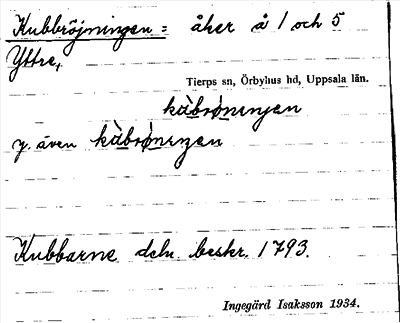 Kubbröjningen: åker å 1 och 5
Yttre,
Tierps sn, Örbyhus hd, Uppsala län.
kùbrø̀nıŋen
y. även kùbrø̀nıŋen
Kubbarne deln. beskr. 1793.
Ingegärd Isaksson 1934.